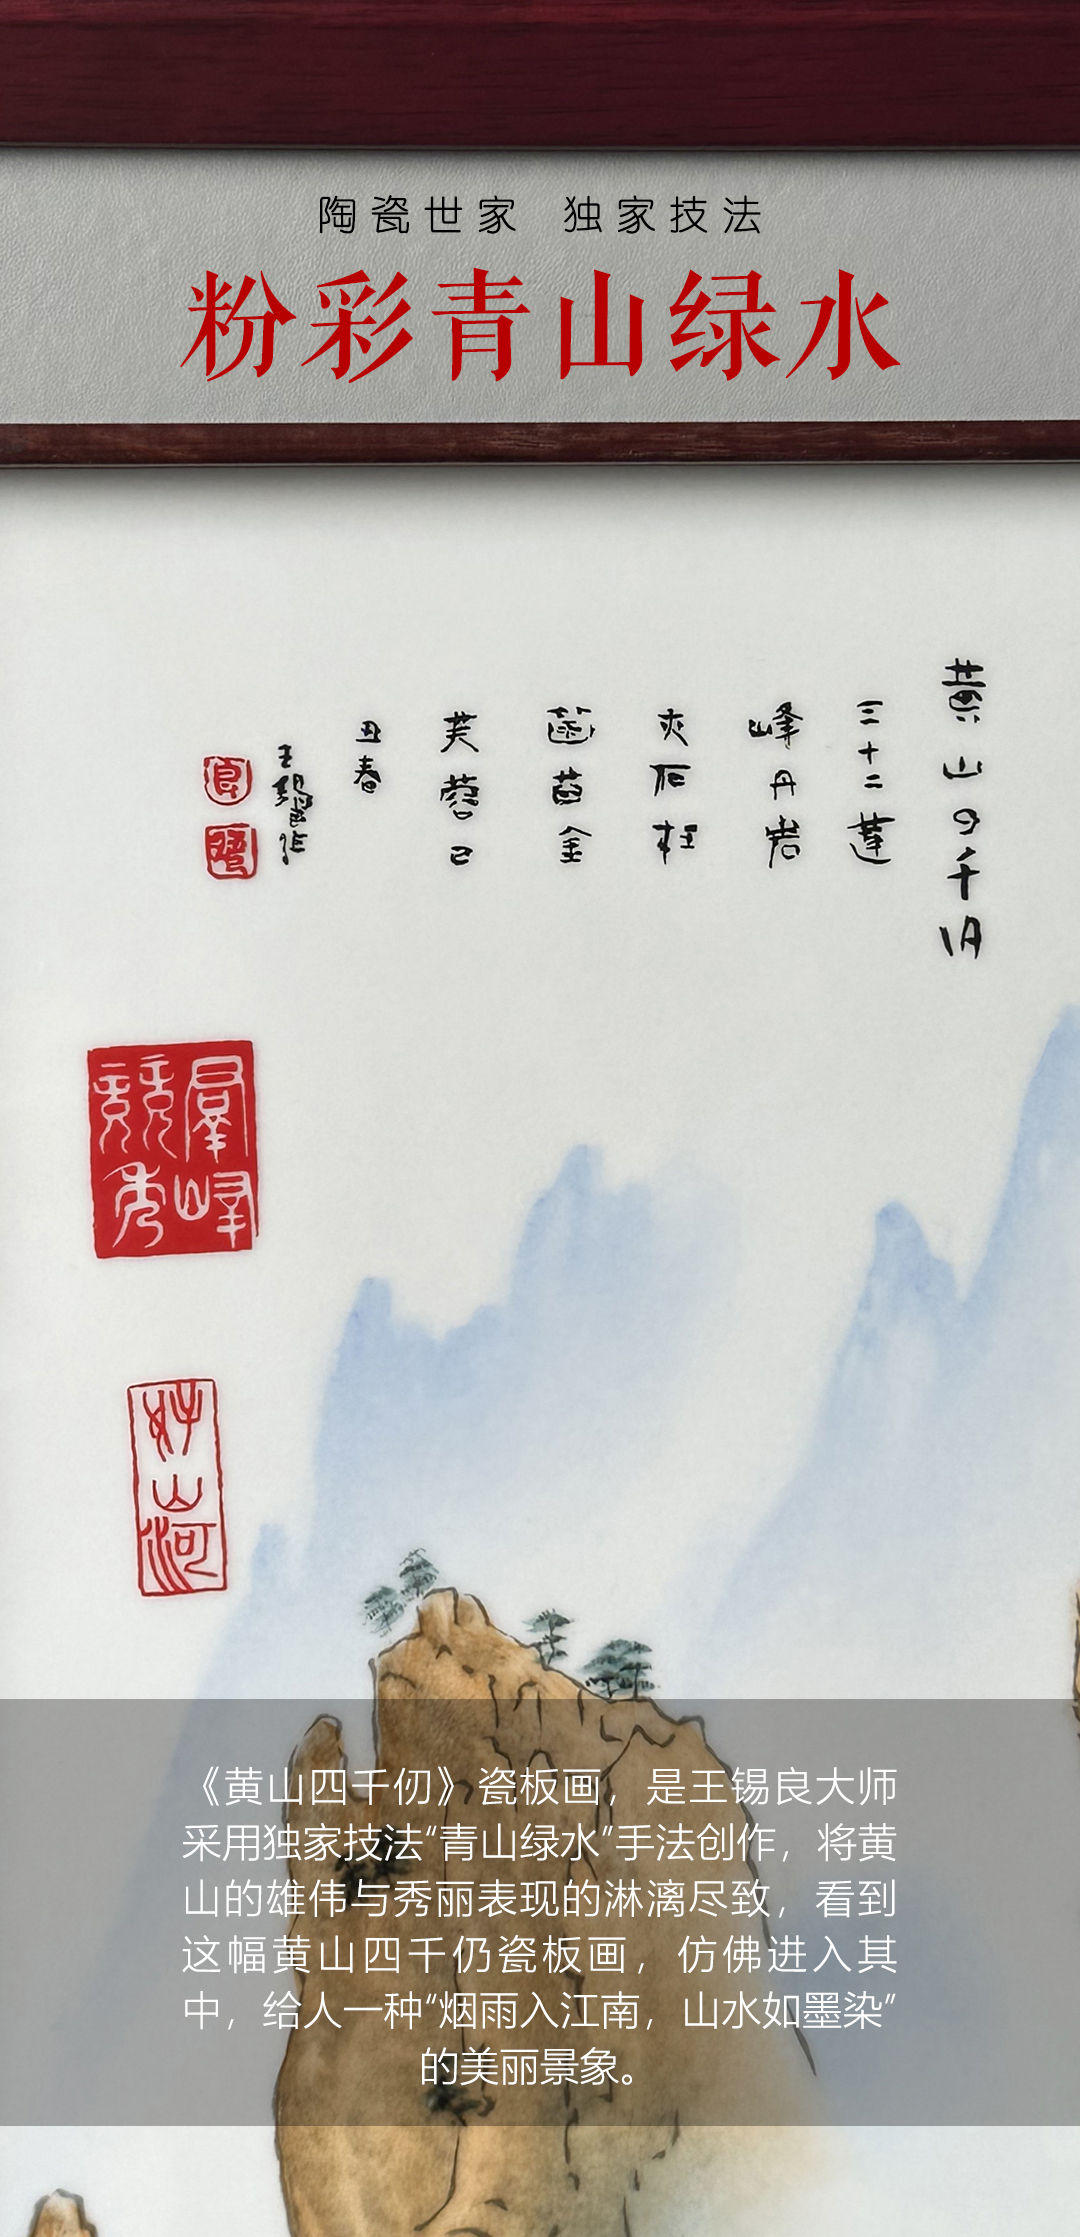 陶瓷世家 独家技法
粉彩青山绿水
黃山四千仞
三十二蓮
峰丹岩
夾石柱
菡萏金
芙蓉己
丑春
王錫良作
良
羣峰
競秀
好山河
《黄山四千仞》瓷板画，是王锡良大师
采用独家技法“青山绿水”手法创作，将黄
山的雄伟与秀丽表现的淋漓尽致，看到
这幅黄山四千仍瓷板画，仿佛进入其
中，给人一种“烟雨入江南，山水如墨染”
的美丽景象。